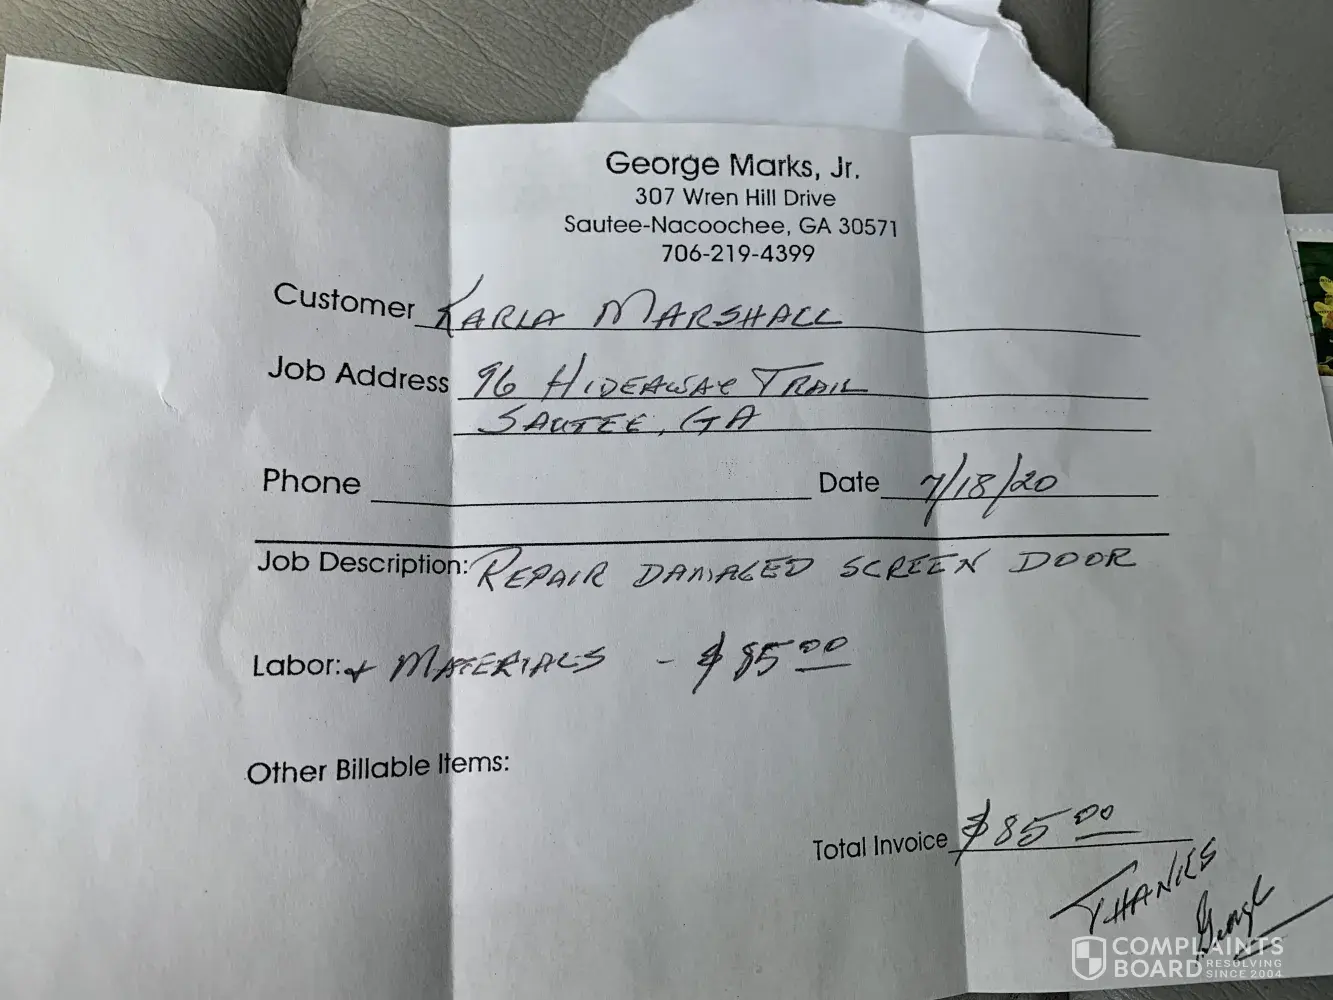 George Marks, Jr.
307 Wren Hill Drive
Sautee-Nacoochee, GA 30571
706-219-4399
Customer KARLA MARSHALL
Job Address 96 HIDEAWAY TRAIL
SAUTEE, GA
Phone Date 7/18/20
Job Description: REPAIR DAMAGED SCREEN DOOR
Labor: + MATERIALS - $85.00
Other Billable Items:
Total Invoice $85.00
THANKS
George
COMPLAINTS
BOARD RESOLVING
SINCE 2004